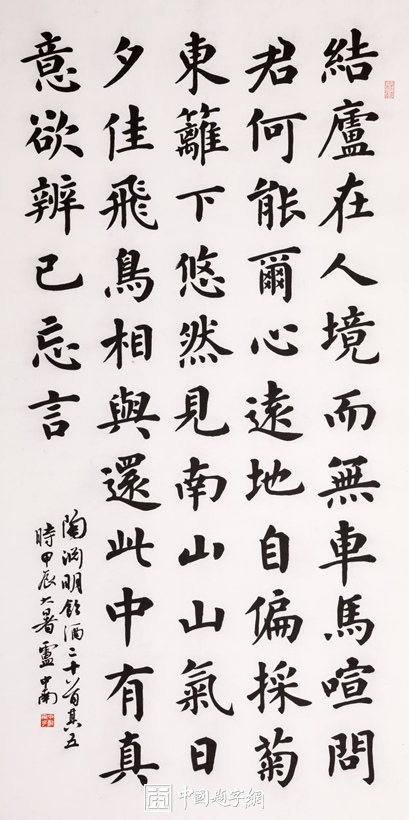 結廬在人境而無車馬喧問
君何能爾心遠地自偏採菊
東籬下悠然見南山山氣日
夕佳飛鳥相與還此中有真
意欲辨已忘言
陶淵明飲酒二十首其五
時甲辰大暑盧中南
中國題字網